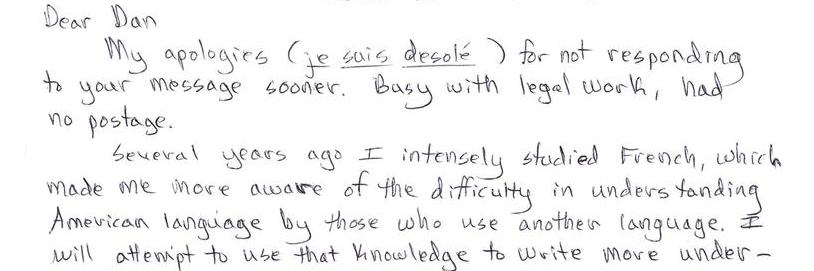 Dear Dan
My apologies (je suis desolé) for not responding
to your message sooner. Busy with legal work, had
no postage.
Several years ago I intensely studied French, which
made me more aware of the difficulty in understanding
American language by those who use another language. I
will attempt to use that knowledge to write more under-